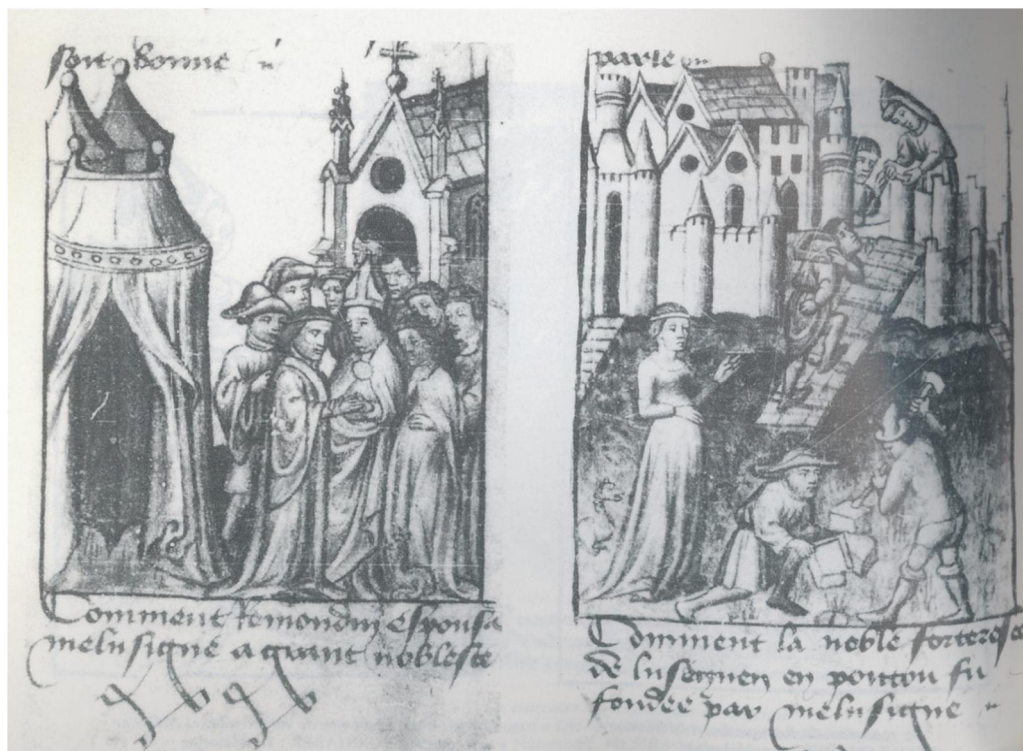 soit bonne
Comment Remondin espousa
melusigne a grant noblesse
parle
Comment la noble forteresse
de lusegnen en poitou fu
fondee par melusigne